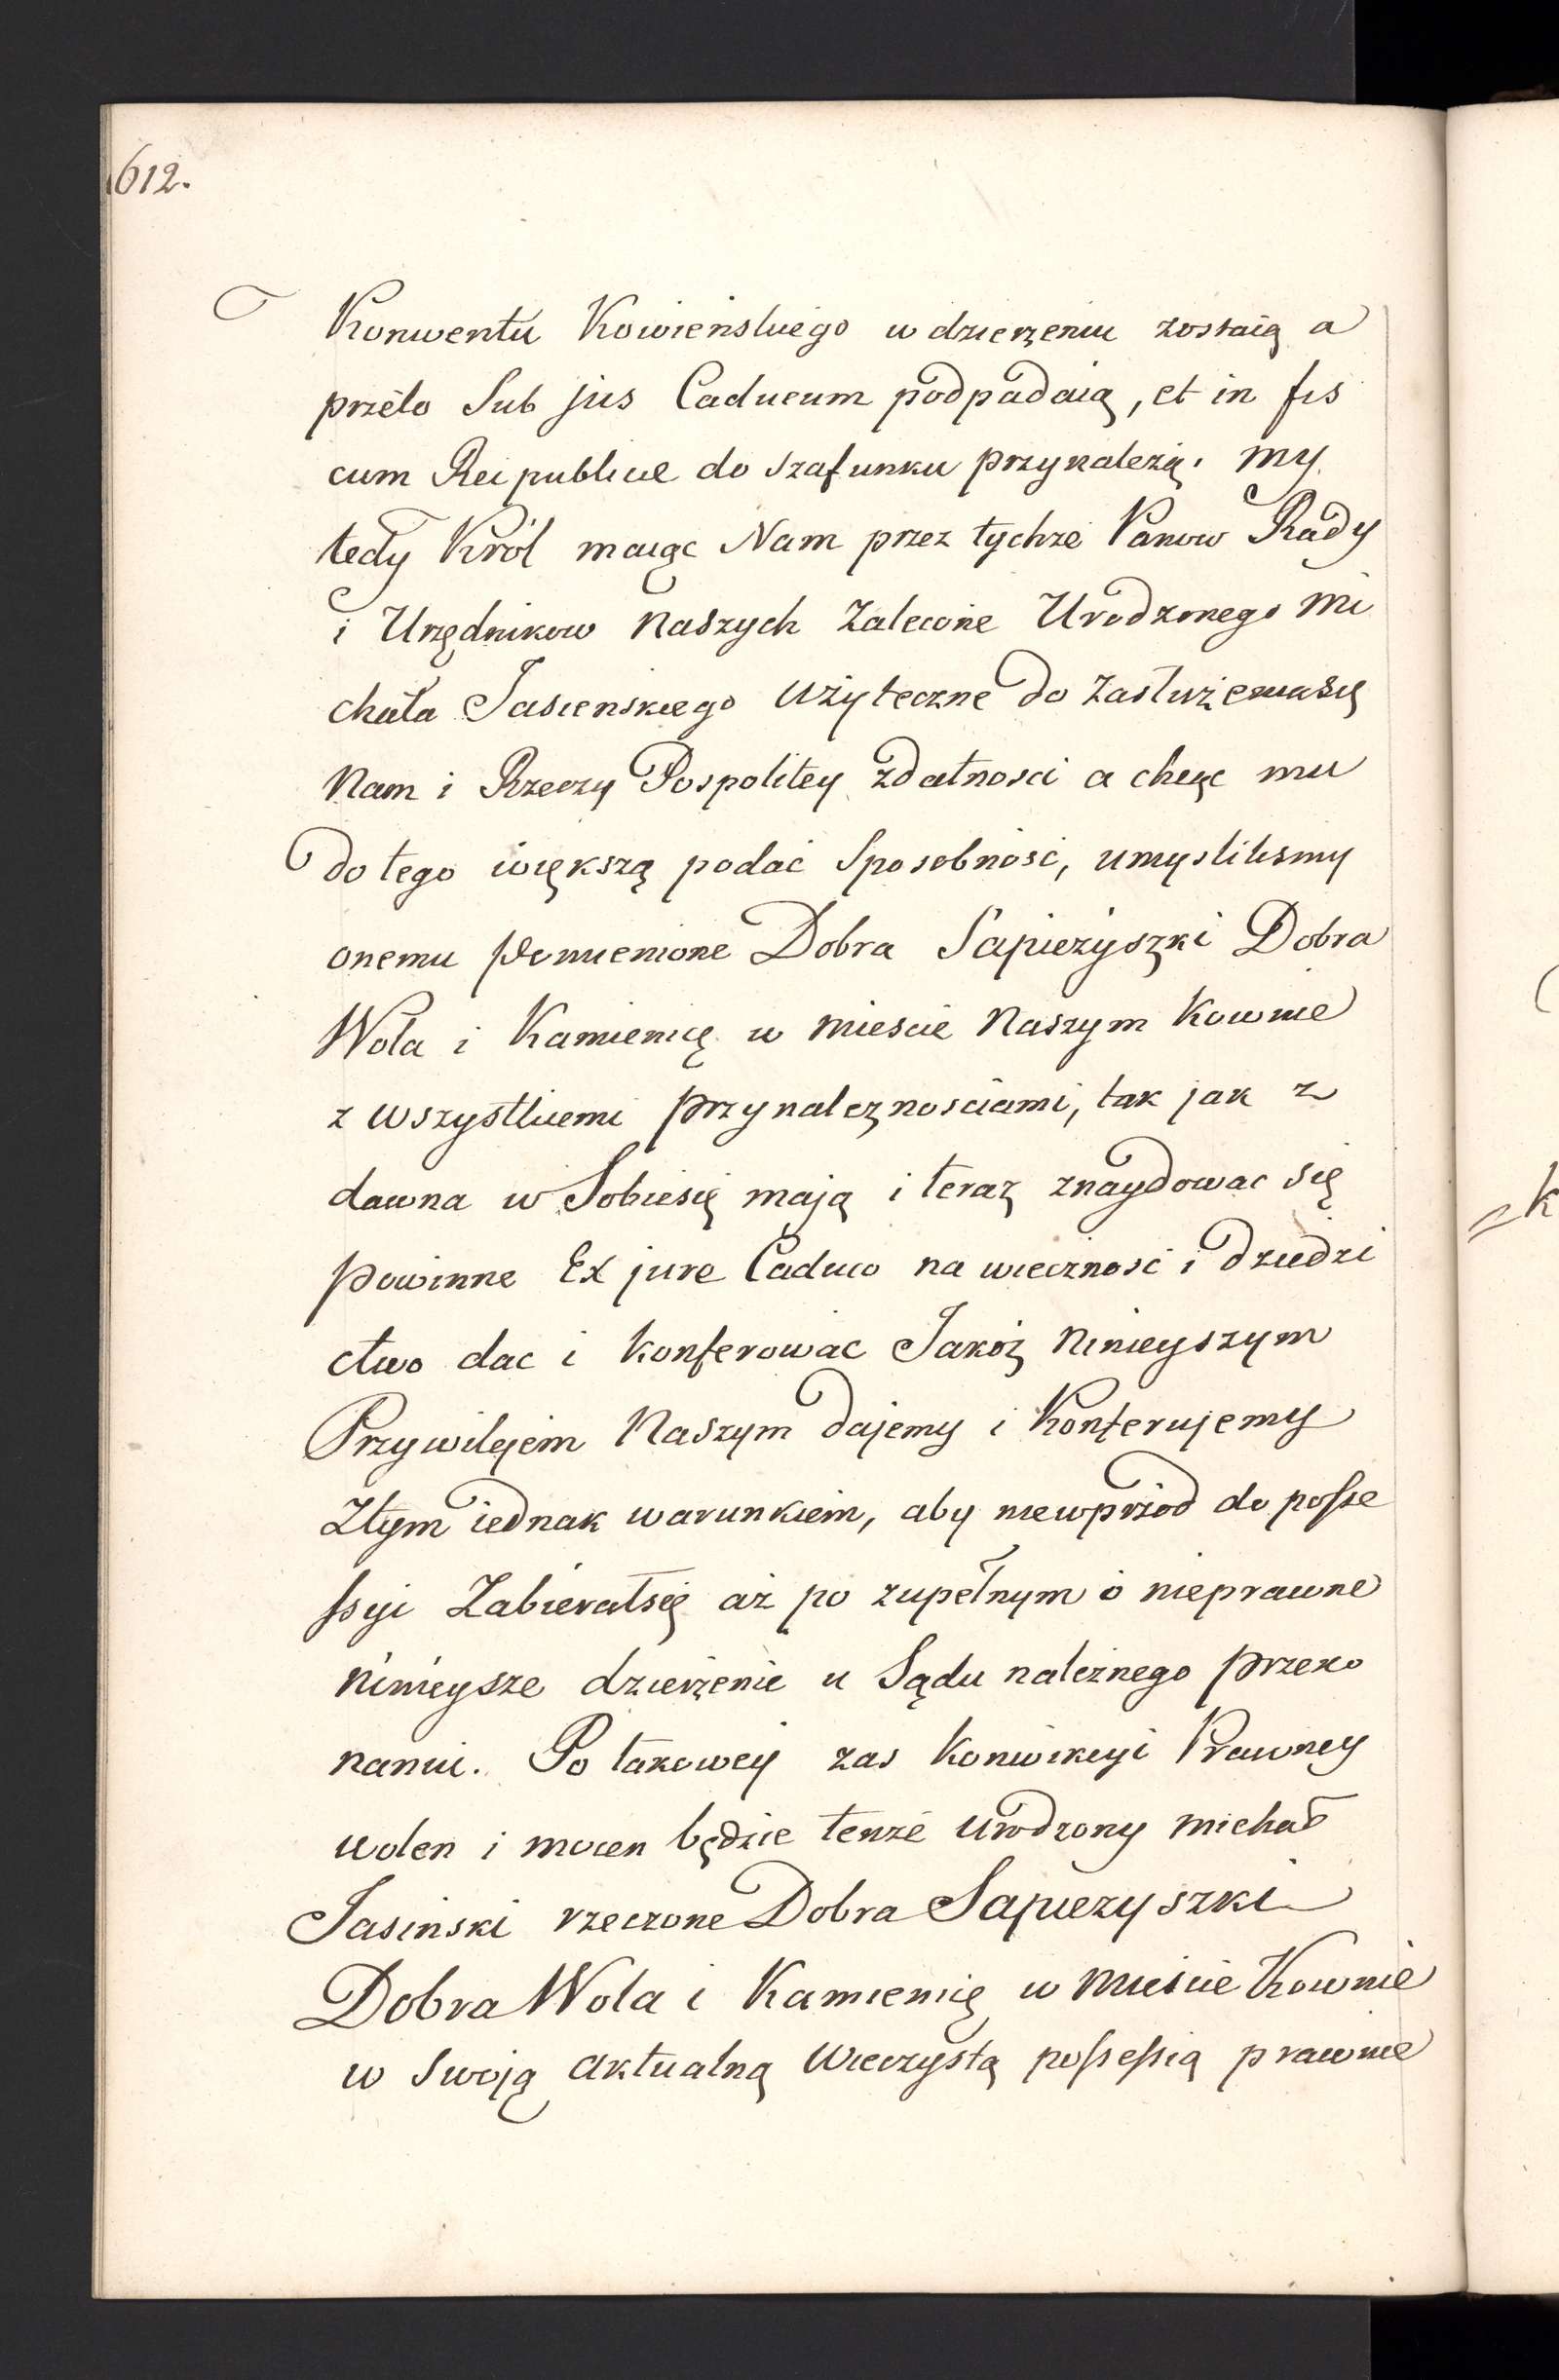 612.
Konwentu Kowieńskiego w dzierzeniu zostaią a
przeto Sub jus Caducum podpadaią, et in fis
cum Reipublicæ do szafunku przynależą. my
tedy Król maiąc Nam przez tychże Panow Rady
i Urzędnikow Naszych Zalecone Urodzonego Mi
chała Jasienskiego użyteczne do Zasłużeniasię
Nam i Rzeczy Pospolitey zdatnosci a chcąc mu
do tego większą podać Sposobność, umyslilismy
onemu pomienione Dobra Sapieżyszki Dobra
Wola i Kamienicę w Miescie Naszym Kownie
z wszystkiemi przynależnościami, tak jak z
dawna w Sobiesię mają i teraz znaydowac się
powinne Ex jure Caduco na wieczność i dziedzi
ctwo dac i konferowac Jakoż Ninieyszym
Przywilejem Naszym dajemy i Konferujemy
Ztym iednak warunkiem, aby niewprzod do posse
ssyi Zabierałsię aż po zupełnym o nieprawne
ninieysze dzierżenie u Sądu należnego przeko
naniu. Po takowey zas Konwikcyi Prawney
wolen i mocen będzie tenże urodzony Michał
Jasinski rzeczone Dobra Sapiezyszki
Dobra Wola i Kamienicę w Miescie Kownie
w swoją aktualną wieczystą possessią prawnie